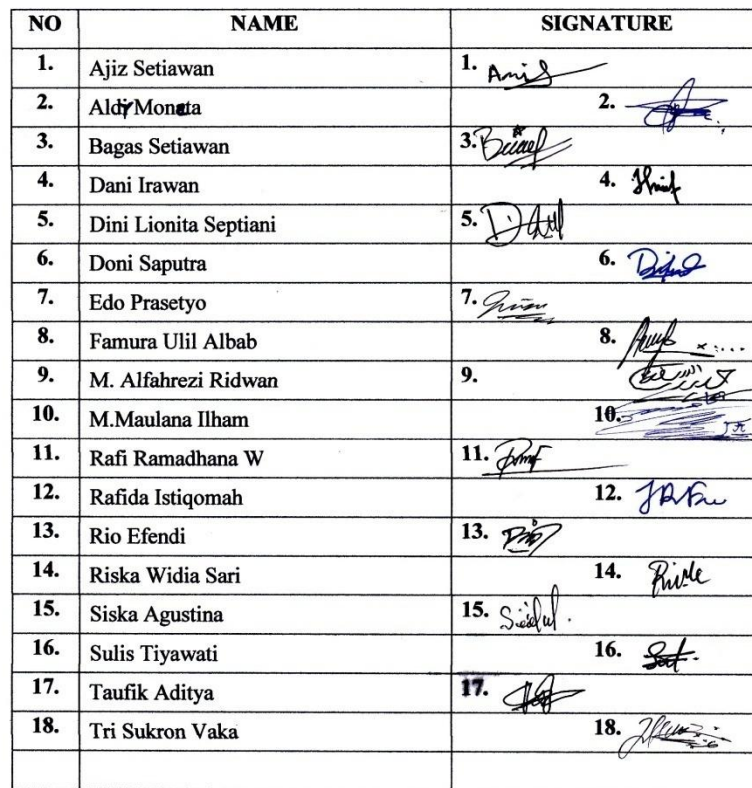 NO NAME SIGNATURE
1. Ajiz Setiawan 1.
2. Aldy Monata 2.
3. Bagas Setiawan 3.
4. Dani Irawan 4.
5. Dini Lionita Septiani 5.
6. Doni Saputra 6.
7. Edo Prasetyo 7.
8. Famura Ulil Albab 8.
9. M. Alfahrezi Ridwan 9.
10. M.Maulana Ilham 10.
11. Rafi Ramadhana W 11.
12. Rafida Istiqomah 12.
13. Rio Efendi 13.
14. Riska Widia Sari 14.
15. Siska Agustina 15.
16. Sulis Tiyawati 16.
17. Taufik Aditya 17.
18. Tri Sukron Vaka 18.